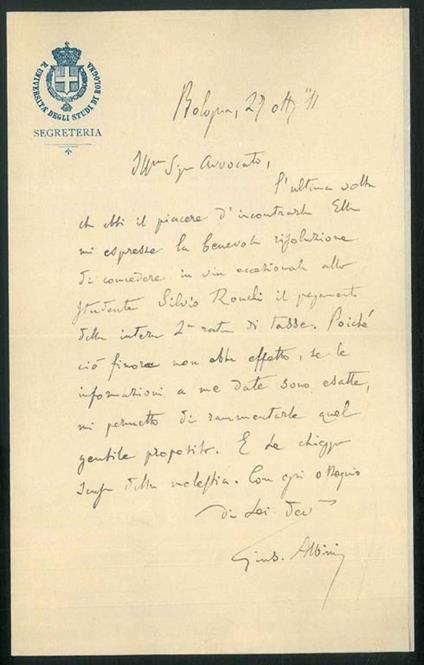 R. UNIVERSITÀ DEGLI STUDI DI BOLOGNA
SEGRETERIA
Bologna, 27 ott. '11
Ill.mo Sig.r Avvocato,
l'ultima volta
ch'ebbi il piacere d'incontrarla Ella
mi espresse la benevola risoluzione
di concedere in via eccezionale allo
studente Silvio Ronchi il pagamento
della intera 2ª rata di tasse. Poiché
ciò finora non ebbe effetto, se le
informazioni a me date sono esatte,
mi permetto di rammentarle quel
gentile proposito. E La chieggo
scusa della molestia. Con ogni ossequio
di Lei dev.
Gius. Albini